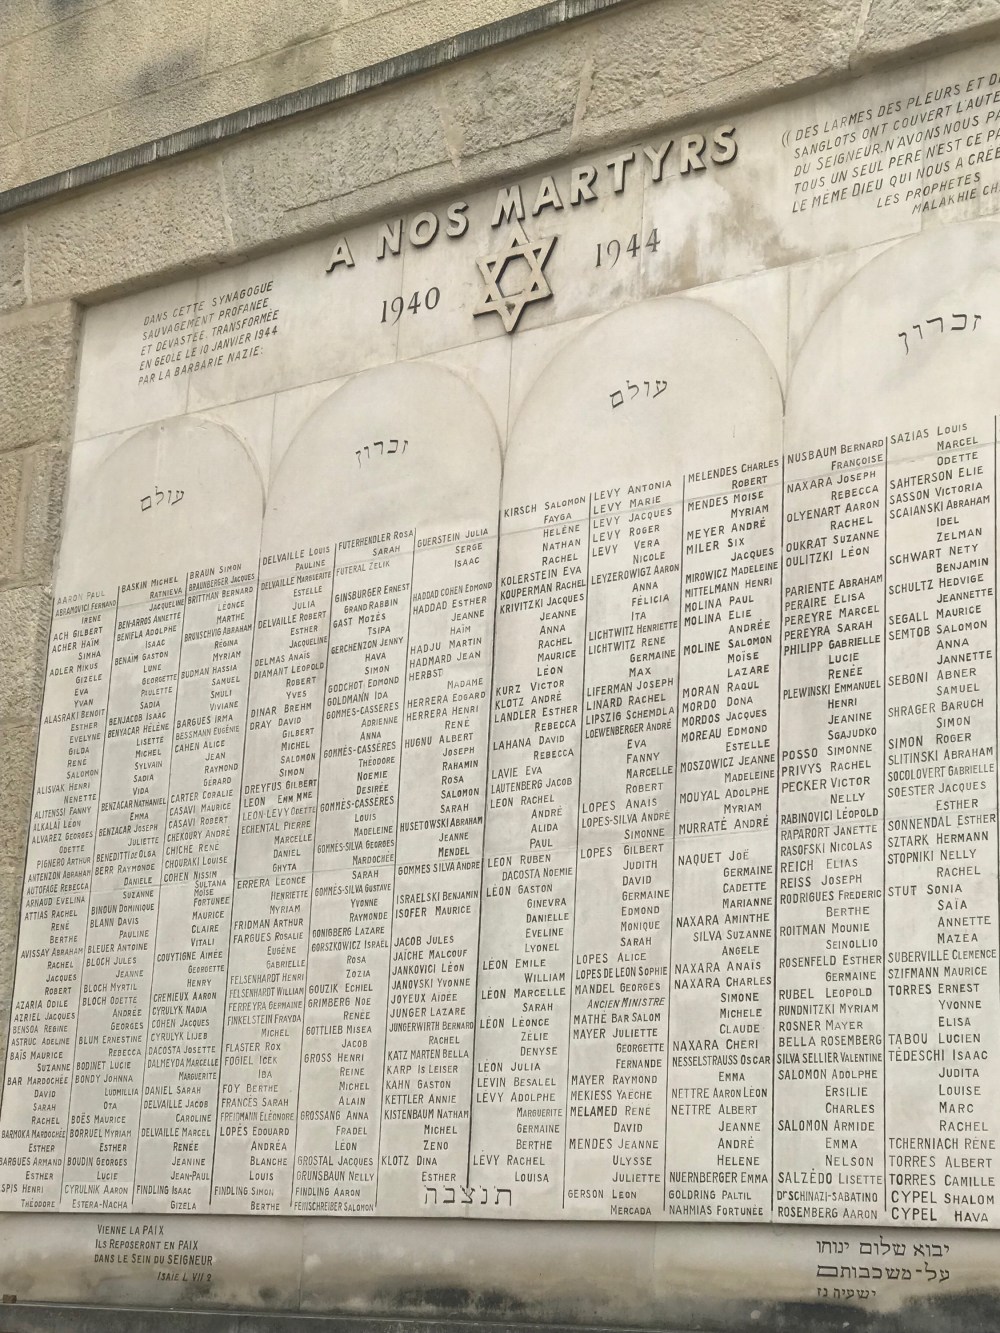 A NOS MARTYRS
1940
1944
DANS CETTE SYNAGOGUE
SAUVAGEMENT PROFANEE
ET DEVASTEE, TRANSFORMÉE
EN GEOLE LE 10 JANVIER 1944
PAR LA BARBARIE NAZIE:
(( DES LARMES DES PLEURS ET
SANGLOTS ONT COUVERT
DU SEIGNEUR. N'AVONS NOUS
TOUS UN SEUL PERE N'EST CE
LE MÊME DIEU QUI NOUS A
LES PROPHETES
MALAKHIE
עולם
זכרון
עולם
זכרון
AARON PAUL
ABRAMOVICI FERNAND
IRENE
ACH GILBERT
ACHER HAÏM
SIMHA
ADLER MIKUS
GIZELE
EVA
YVAN
ALASRAKI BENOIT
ESTHER
EVELYNE
GILDA
RENÉ
SALOMON
ALISVAK HENRI
NENETTE
ALITENSSI FANNY
ALKALAÏ LÉON
ALVAREZ GEORGES
ODETTE
PIGNERO ARTHUR
ANTENZON ABRAHAM
AUTOFAGE REBECCA
ARNAUD EVELINA
ATTIAS RACHEL
RENÉ
BERTHE
AVISSAY ABRAHAM
RACHEL
JACQUES
ROBERT
AZARIA ODILE
AZRIEL JACQUES
BENSOA REGINE
ASTRUC ADELINE
BAÏS MAURICE
SUZANNE
BAR MARDOCHÉE
DAVID
SARAH
RACHEL
BARMOKA MARDOCHÉE
ESTHER
BARGUES ARMAND
ESTHER
HENRI
THÉODORE
BASKIN MICHEL
RATNIEVA
JACQUELINE
BEN-ARROS ANNETTE
BENIFLA ADOLPHE
ISAAC
BENAÏM GASTON
LUNE
GEORGETTE
PAULETTE
SADIA
BENJACOB ISAAC
BENYACAR HÉLÈNE
LISETTE
MICHEL
SYLVAIN
SADIA
VIDA
BENZACAR NATHANIEL
EMMA
BENZACAR JOSEPH
JULIETTE
BENEDITTI DE OLGA
BERR RAYMONDE
DANIELE
SUZANNE
BINOUN DOMINIQUE
BLANN DAVIS
PAULINE
BLEUER ANTOINE
BLOCH JULES
JEANNE
BLOCH MYRTIL
BLOCH ODETTE
ANDRÉE
GEORGES
BLUM ERNESTINE
REBECCA
BODINET LUCIE
BONDY JOHNNA
LUDMILLIA
OTA
BOËS MAURICE
BORRUEL MYRIAM
ESTHER
BOUDIN GEORGES
LUCIE
CYRULNIK AARON
ESTERA-NACHA
BRAUN SIMON
BRAUNBERGER JACQUES
BRITTMAN BERNARD
LÉONCE
MARTHE
BRUNSCHVIG ABRAHAM
RÉGINA
MYRIAM
BUDMAN HASSIA
SAMUEL
SMULI
VIVIANE
BARGUES IRMA
BESSMANN EUGÉNIE
CAHEN ALICE
JEAN
RAYMOND
GÉRARD
CARTER CORALIE
CASAVI MAURICE
CASAVI ROBERT
CHEKOURY ANDRÉ
CHICHE RENÉ
CHOURAKI LOUISE
COHEN NISSIM
SULTANA
MOÏSE
FORTUNÉE
MAURICE
CLAIRE
VITALI
COUYTIGNE AIMÉE
GEORGETTE
HENRY
CREMIEUX AARON
CYRULYK NADIA
COHEN JACQUES
CYRULYK LIJEB
DACOSTA JOSETTE
DALMEYDA MARCELLE
MARGUERITE
DANIEL SARAH
DELVAILLE JACOB
CAROLINE
DELVAILLE MARCEL
RENÉE
JEANINE
JEAN-PAUL
FINDLING ISAAC
GIZELA
DELVAILLE LOUIS
PAULINE
DELVAILLE MARGUERITE
ESTELLE
JULIA
DELVAILLE ROBERT
ESTHER
JACQUELINE
DELMAS ANAÏS
DIAMANT LEOPOLD
ROBERT
YVES
DINAR BREHM
DRAY DAVID
GILBERT
MICHEL
SALOMON
SIMON
DREYFUS GILBERT
LEON EMM MME
LEON-LEVY ODETTE
ECHENTAL PIERRE
MARCELLE
DANIEL
GHYTA
ERRERA LEONCE
HENRIETTE
MYRIAM
FRIDMAN ARTHUR
FARGUES ROSALIE
EUGÈNE
GABRIELLE
FELSENHARDT HENRI
FELSENHARDT WILLIAM
FERREYRA GERMAINE
FINKELSTEIN FRAYDA
MICHEL
FLASTER ROX
FOGIEL ICEK
IBA
FOY BERTHE
FRANCÈS SARAH
FREIDMANN ELÉONORE
LOPÈS EDOUARD
ANDRÉA
BLANCHE
LOUIS
FINDLING SIMON
BERTHE
FUTERHENDLER ROSA
SARAH
FUTERAL ZELIK
GINSBURGER ERNEST
GRAND RABBIN
GAST MOZÈS
TSIPA
GERCHENZON JENNY
HAVA
SIMON
GODCHOT EDMOND
GOLDMANN IDA
GOMMÈS-CASSERES
ADRIENNE
ANNA
GOMMÈS-CASSÈRES
THÉODORE
NOEMIE
DESIRÉE
GOMMÈS-CASSERES
LOUIS
MADELEINE
GOMMÈS-SILVA GEORGES
MARDOCHÉE
SARAH
GOMMÈS-SILVA GUSTAVE
YVONNE
RAYMONDE
GONIGBERG LAZARE
GORSZKOWICZ ISRAËL
ROSA
ZOZIA
GOUZIK ECHIEL
GRIMBERG NOE
RENÉE
GOTTLIEB MISEA
JACOB
GROSS HENRI
REINE
MICHEL
ALAIN
GROSSANG ANNA
FRADEL
LÉON
GROSTAL JACQUES
GRUNSBAUN NELLY
FINDLING AARON
FENIISCHREIBER SALOMON
GUERSTEIN JULIA
SERGE
ISAAC
HADDAD COHEN EDMOND
HADDAD ESTHER
JEANNE
HAÏM
HADJU MARTIN
HADMARD JEAN
HERBST
MADAME
HERRERA EDGARD
HERRERA HENRI
RENÉ
HUGNU ALBERT
JOSEPH
RAHAMIN
ROSA
SALOMON
SARAH
HUSETOWSKI ABRAHAM
JEANNE
MENDEL
GOMMES SILVA ANDRÉ
ISRAELSKI BENJAMIN
ISOFER MAURICE
JACOB JULES
JAÏCHE MALCOUF
JANKOVICI LÉON
JANOVSKI YVONNE
JOYEUX AIDÉE
JUNGER LAZARE
JUNGERWIRTH BERNARD
RACHEL
KATZ MARTEN BELLA
KARP IS LEISER
KAHN GASTON
KETTLER ANNIE
KISTENBAUM NATHAN
MICHEL
ZENO
KLOTZ DINA
ESTHER
KIRSCH SALOMON
FAYGA
HÉLÈNE
NATHAN
RACHEL
KOLERSTEIN EVA
KOUPERMAN RACHEL
KRIVITZKI JACQUES
JEANNE
ANNA
RACHEL
MAURICE
LÉON
KURZ VICTOR
KLOTZ ANDRÉ
LANDLER ESTHER
REBECCA
LAHANA DAVID
REBECCA
LAVIE EVA
LAUTENBERG JACOB
LEON RACHEL
ANDRÉ
ALIDA
PAUL
LEON RUBEN
DACOSTA NOEMIE
LÉON GASTON
GINEVRA
DANIELLE
EVELINE
LYONEL
LÉON EMILE
WILLIAM
LÉON MARCELLE
SARAH
LÉON LÉONCE
ZÉLIE
DENYSE
LÉON JULIA
LEVIN BESALEL
LEVY ADOLPHE
MARGUERITE
GERMAINE
BERTHE
LÉVY RACHEL
LOUISA
LEVY ANTONIA
LEVY MARIE
LEVY JACQUES
LEVY ROGER
LEVY VERA
NICOLE
LEYZEROWIGZ AARON
ANNA
FÉLICIA
ITA
LICHTWITZ HENRIETTE
LICHTWITZ RENE
GERMAINE
MAX
LIFERMAN JOSEPH
LINARD RACHEL
LIPSZIG SCHEMDLA
LOEWENBERGER ANDRÉ
EVA
FANNY
MARCELLE
ROBERT
LOPES ANAIS
LOPES-SILVA ANDRÉ
SIMONNE
LOPES GILBERT
JUDITH
DAVID
GERMAINE
EDMOND
MONIQUE
SARAH
LOPES ALICE
LOPES DE LEON SOPHIE
MANDEL GEORGES
ANCIEN MINISTRE
MATHÉ BAR SALOM
MAYER JULIETTE
GEORGETTE
FERNANDE
MAYER RAYMOND
MEKIESS YAECHE
MELAMED RENÉ
DAVID
MENDES JEANNE
ULYSSE
JULIETTE
GERSON LEON
MERCADA
MELENDES CHARLES
ROBERT
MENDES MOISE
MYRIAM
MEYER ANDRÉ
MILER SIX
JACQUES
MIROWICZ MADELEINE
MITTELMANN HENRI
MOLINA PAUL
MOLINA ELIE
ANDRÉE
MOLINE SALOMON
MOÏSE
LAZARE
MORAN RAQUL
MORDO DONA
MORDOS JACQUES
MOREAU EDMOND
ESTELLE
MOSZOWICZ JEANNE
MADELEINE
MOUYAL ADOLPHE
MYRIAM
MURRATÉ ANDRÉ
NAQUET JOË
GERMAINE
CADETTE
MARIANNE
NAXARA AMINTHE
SILVA SUZANNE
ANGELE
NAXARA ANAÏS
NAXARA CHARLES
SIMONE
MICHELE
CLAUDE
NAXARA CHÉRI
NESSELSTRAUSS OSCAR
EMMA
NETTRE AARON LEON
NETTRE ALBERT
JEANNE
ANDRÉ
HELENE
NUERNBERGER EMMA
GOLDRING PALTIL
NAHMIAS FORTUNÉE
NUSBAUM BERNARD
FRANÇOISE
NAXARA JOSEPH
REBECCA
OLYENART AARON
RACHEL
OUKRAT SUZANNE
OULITZKI LÉON
PARIENTE ABRAHAM
PERAIRE ELISA
PEREYRE MARCEL
PEREYRA SARAH
PHILIPP GABRIELLE
LUCIE
RENÉE
PLEWINSKI EMMANUEL
HENRI
JEANINE
SGAJUDKO
POSSO SIMONNE
PRIVYS RACHEL
PECKER VICTOR
NELLY
RABINOVICI LÉOPOLD
RAPARORT JANETTE
RASOFSKI NICOLAS
REICH ELIAS
REISS JOSEPH
RODRIGUES FREDERIC
BERTHE
ROITMAN MOUNIE
SEINOLLIO
ROSENFELD ESTHER
GERMAINE
RUBEL LEOPOLD
RUNDNITZKI MYRIAM
ROSNER MAYER
BELLA ROSEMBERG
SILVA SELLIER VALENTINE
SALOMON ADOLPHE
ERSILIE
CHARLES
SALOMON ARMIDE
EMMA
NELSON
SALZÈDO LISETTE
Dr SCHINAZI-SABATINO
ROSEMBERG AARON
SAZIAS LOUIS
MARCEL
ODETTE
SAHTERSON ELIE
SASSON VICTORIA
SCAIANSKI ABRAHAM
IDEL
ZELMAN
SCHWART NETY
BENJAMIN
SCHULTZ HEDVIGE
JEANNETTE
SEGALL MAURICE
SEMTOB SALOMON
ANNA
JANNETTE
SEBONI ABNER
SAMUEL
SHRAGER BARUCH
SIMON
SIMON ROGER
SLITINSKI ABRAHAM
SOCOLOVERT GABRIELLE
SOESTER JACQUES
ESTHER
SONNENDAL ESTHER
SZTARK HERMANN
STOPNIKI NELLY
RACHEL
STUT SONIA
SAÏA
ANNETTE
MAZEA
SUBERVILLE CLEMENCE
SZIFMANN MAURICE
TORRES ERNEST
YVONNE
ELISA
TABOU LUCIEN
TÉDESCHI ISAAC
JUDITA
LOUISE
MARC
RACHEL
TCHERNIACH RENÉ
TORRES ALBERT
TORRES CAMILLE
CYPEL SHALOM
CYPEL HAVA
תנצבה
VIENNE LA PAIX
ILS REPOSERONT EN PAIX
DANS LE SEIN DU SEIGNEUR
ISAIE L VII 2
יבוא שלום ינוחו
על-משכבותם
ישעיה נז